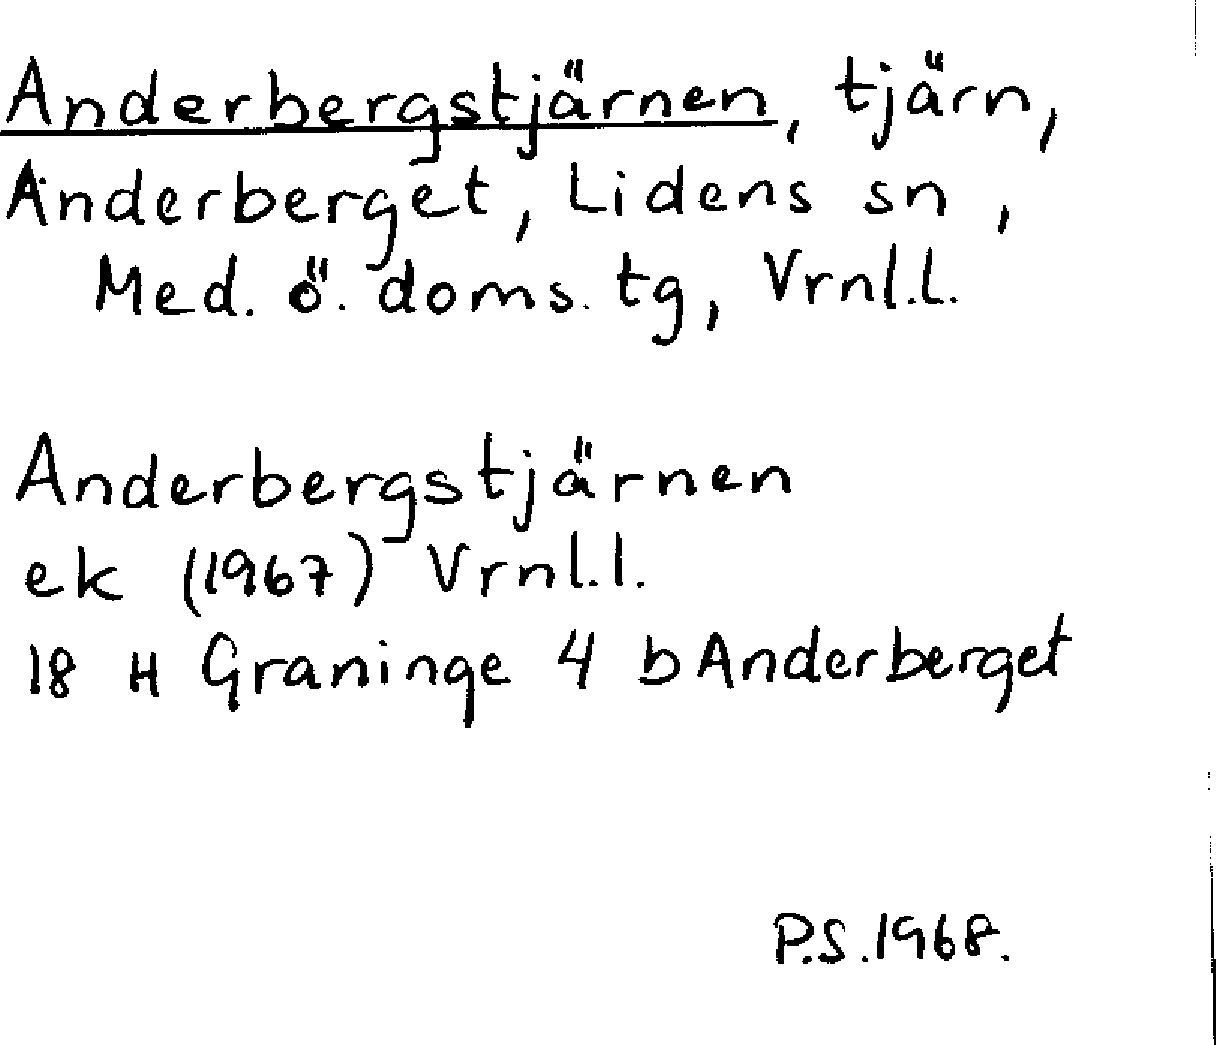 Anderbergstjärnen, tjärn,
Anderberget, Lidens sn,
Med. ö. doms. tg, Vrnl.l.
Anderbergstjärnen
ek (1967) Vrnl.l.
18 H Graninge 4 b Anderberget
P.S. 1968.